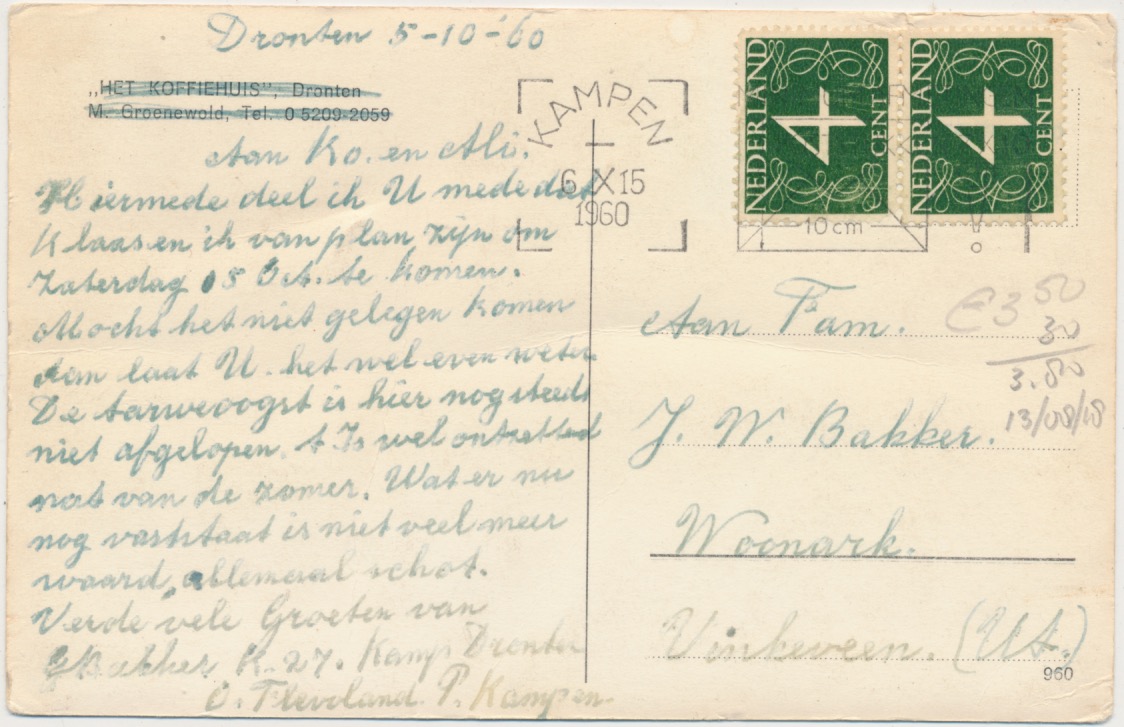 Dronten 5-10-'60
„HET KOFFIEHUIS”, Dronten
M. Groenewold, Tel. 0 5209-2059
Aan Ko. en Ali.
Hiermede deel ik U mede dat
Klaas en ik van plan zijn om
Zaterdag 15 Oct. te komen.
Mocht het niet gelegen komen
dan laat U. het wel even weten
De tarweoogst is hier nog steeds
niet afgelopen. t Is wel ontzettend
nat van de zomer. Wat er nu
nog vaststaat is niet veel meer
waard, allemaal schot.
Verde vele Groeten van
G Bakker K-27. Kamp Dronten
O. Flevoland. P. Kampen.
KAMPEN
6 X 15
1960
NEDERLAND
4
CENT
NEDERLAND
4
CENT
10 cm
!
Aan Fam.
J. W. Bakker.
Woonark.
Vinkeveen. (Ut.)
€3 50
30
3.80
13/08/18
960